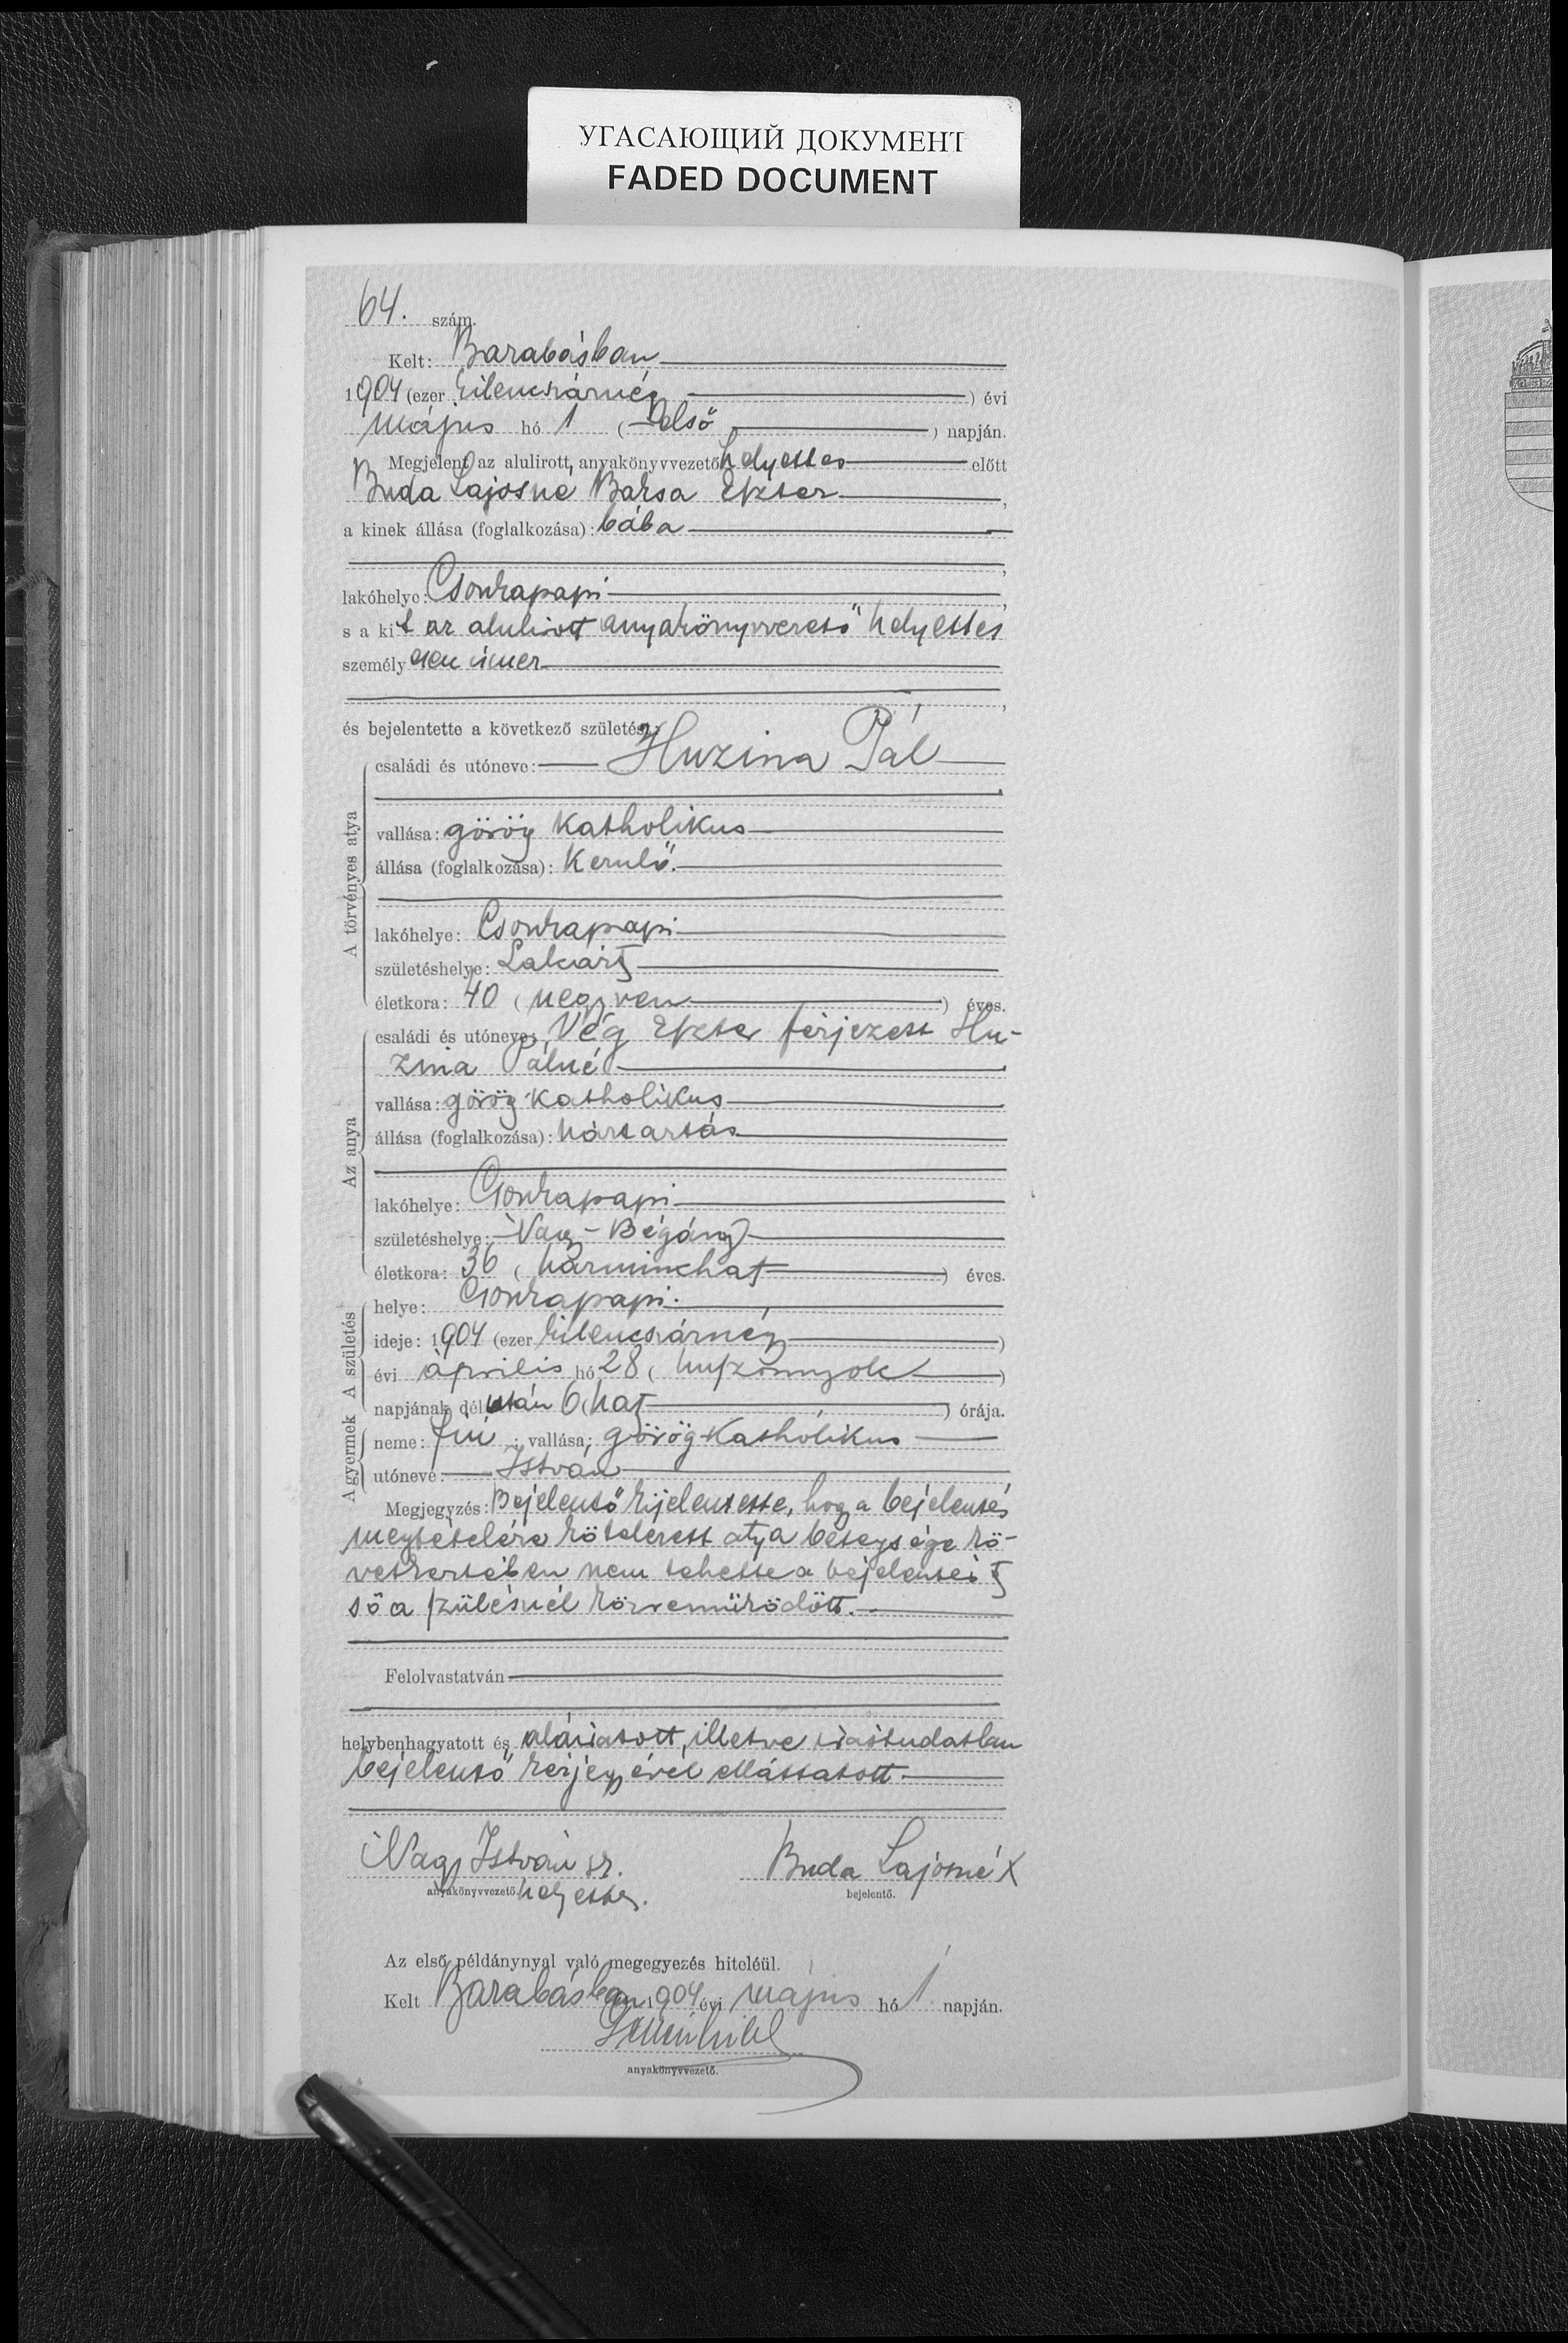 УГАСАЮЩИЙ ДОКУМЕНТ
FADED DOCUMENT
64. szám.
Kelt: Barabásban
1904 (ezer kilencszáznégy) évi
május hó 1 (első) napján.
Megjelent az alulirott anyakönyvvezető helyettes előtt
Buda Lajosné Barsa Eszter,
a kinek állása (foglalkozása): bába
,
lakóhelye: Csonkapapi,
s a kit az alulirott anyakönyvvezető helyettes
személyesen ismer
,
és bejelentette a következő születést:
A törvényes atya
családi és utóneve: Huzina Pál
vallása: görög katholikus
állása (foglalkozása): Kerülő.
lakóhelye: Csonkapapi
születéshelye:
életkora: 40 (negyven) éves.
Az anya
családi és utóneve: Vég Eszter férjezett Hu-
zina Pálné
vallása: görög katholikus
állása (foglalkozása): háztartás
lakóhelye: Csonkapapi
születéshelye: Nagy-Bégány
életkora: 36 (harminchat) éves.
A születés
helye: Csonkapapi.
ideje: 1904 (ezer kilencszáznégy)
évi április hó 28 (huszonnyolc)
napjának délután 6 (hat) órája.
A gyermek
neme: fiú; vallása: görög katholikus
utóneve: István
Megjegyzés: Bejelentő kijelentette, hogy a bejelentés
megtételére kötelezett atya betegsége kö-
vetkeztében nem tehette a bejelentést
s ő a szülésnél közreműködött.
Felolvastatván
helybenhagyatott és aláiratott, illetve irástudatlan
bejelentő kézjegyével elláttatott
Nagy István sk. Buda Lajosné X
anyakönyvvezető helyettes. bejelentő.
Az első példánynyal való megegyezés hiteléül.
Kelt Barabásban 1904 évi május hó 1 napján.
anyakönyvvezető.